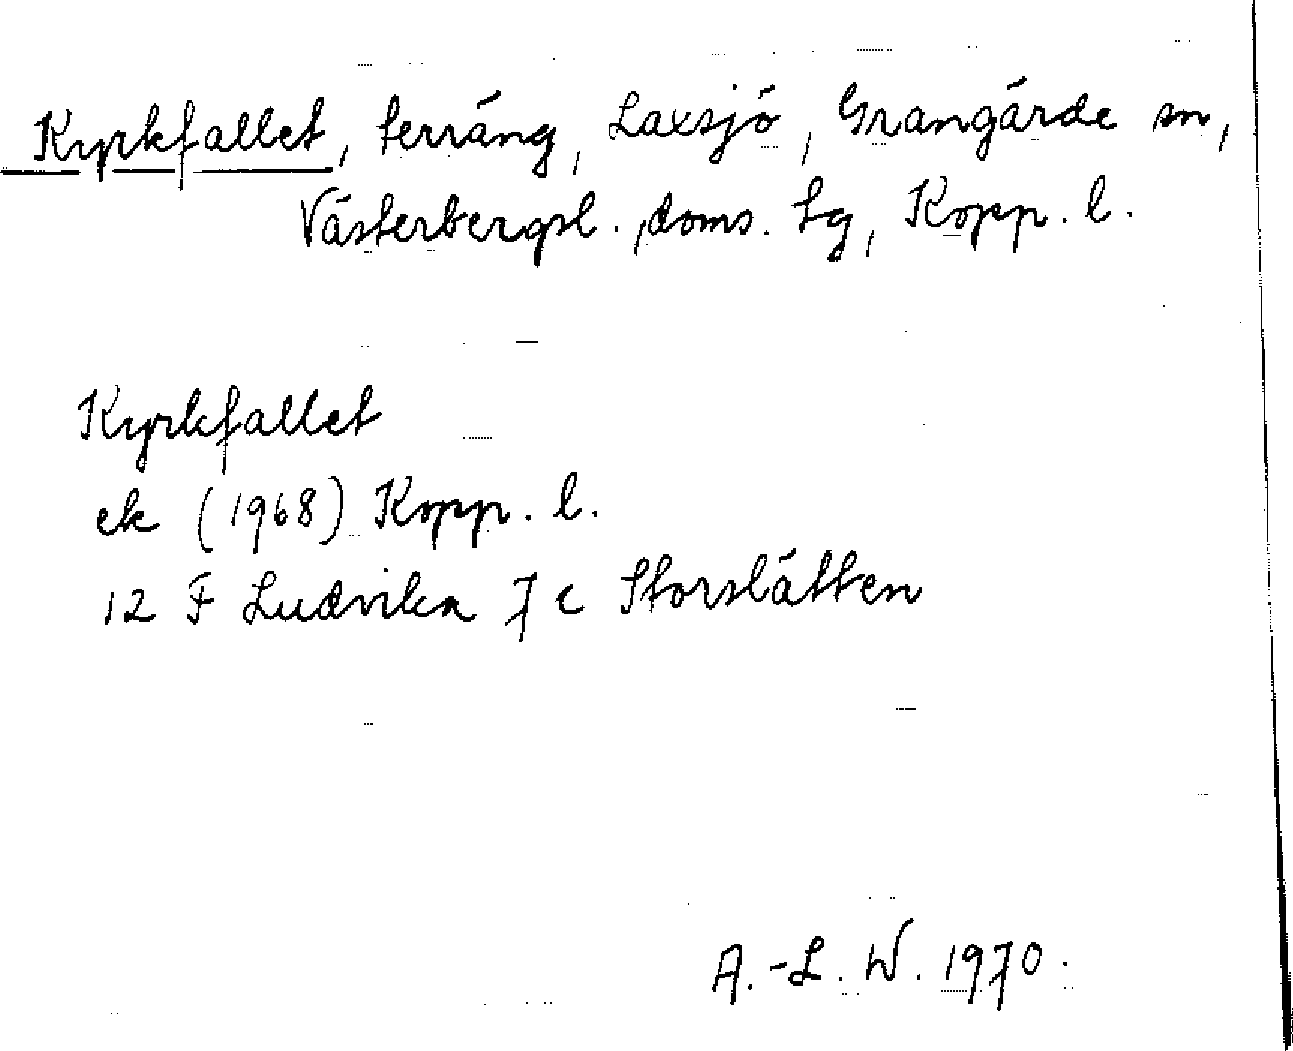 Kyrkfallet, terräng, Laxsjö, Grangärde sn,
Västerbergsl., doms. tg, Kopp. l.
Kyrkfallet
ek (1968) Kopp. l.
12 F Ludvika 7 c Storslätten
A.-L. W. 1970.